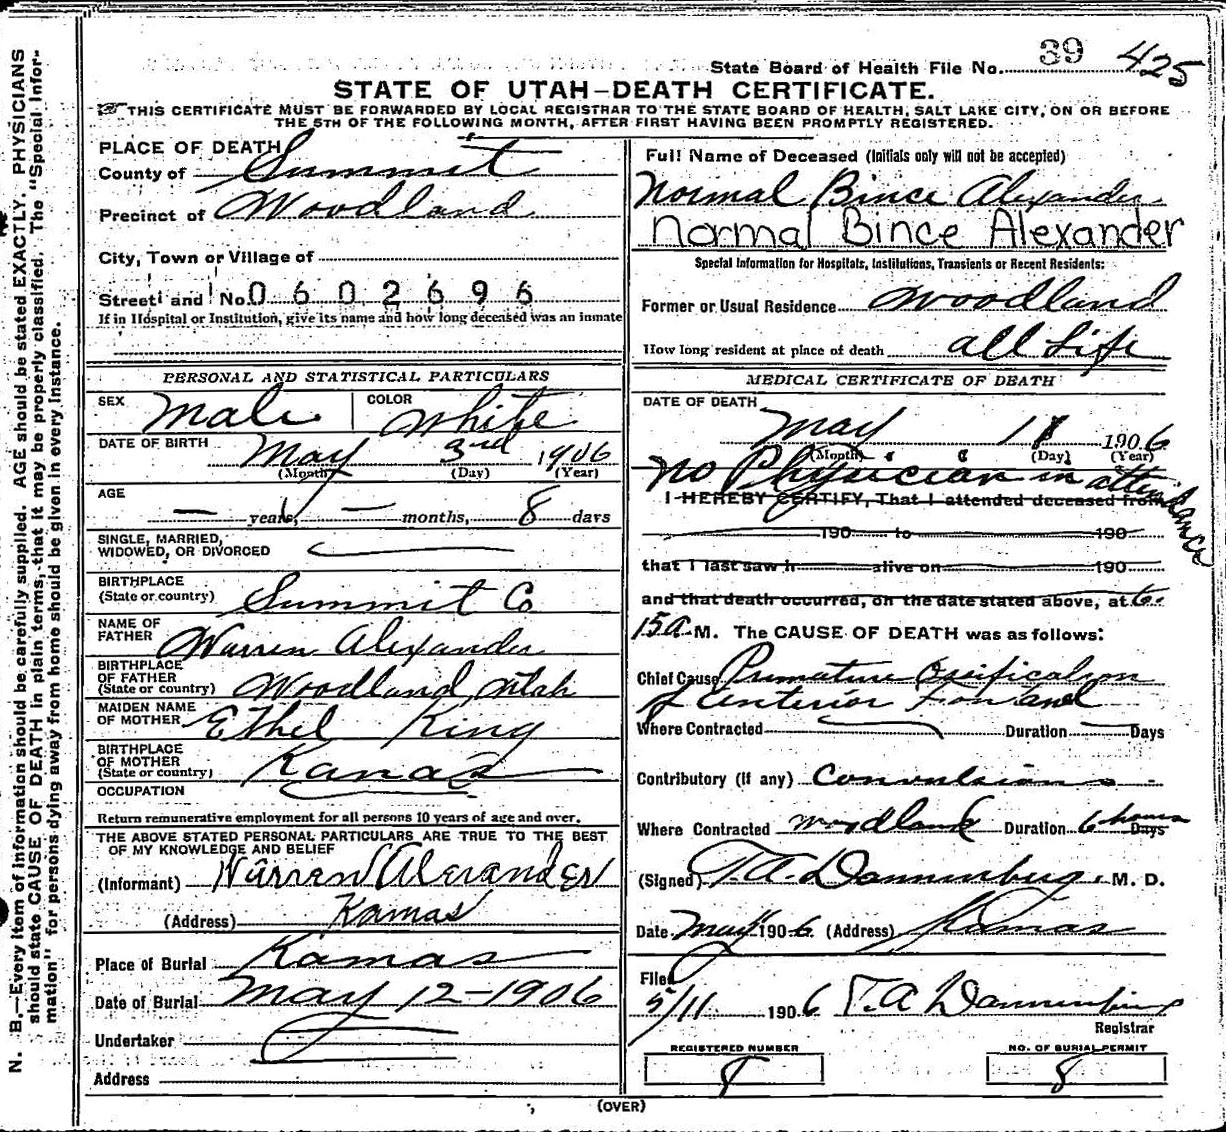 N. B.—Every item of information should be carefully supplied. AGE should be stated EXACTLY. PHYSICIANS
should state CAUSE OF DEATH in plain terms, that it may be properly classified. The "Special Infor-
mation" for persons dying away from home should be given in every instance.
39 425
State Board of Health File No.
STATE OF UTAH—DEATH CERTIFICATE.
THIS CERTIFICATE MUST BE FORWARDED BY LOCAL REGISTRAR TO THE STATE BOARD OF HEALTH, SALT LAKE CITY, ON OR BEFORE
THE 5TH OF THE FOLLOWING MONTH, AFTER FIRST HAVING BEEN PROMPTLY REGISTERED.
PLACE OF DEATH
County of Summit
Precinct of Woodland
City, Town or Village of
Street and No. 0602696
If in Hospital or Institution, give its name and how long deceased was an inmate
PERSONAL AND STATISTICAL PARTICULARS
SEX Male COLOR White
DATE OF BIRTH May 3rd 1906
(Month) (Day) (Year)
AGE
— years, — months, 8 days
SINGLE, MARRIED,
WIDOWED, OR DIVORCED
BIRTHPLACE
(State or country) Summit Co
NAME OF
FATHER Warren Alexander
BIRTHPLACE
OF FATHER
(State or country) Woodland Utah
MAIDEN NAME
OF MOTHER Ethel King
BIRTHPLACE
OF MOTHER
(State or country) Kamas
OCCUPATION
Return remunerative employment for all persons 10 years of age and over.
THE ABOVE STATED PERSONAL PARTICULARS ARE TRUE TO THE BEST
OF MY KNOWLEDGE AND BELIEF
(Informant) Warren Alexander
(Address) Kamas
Place of Burial Kamas
Date of Burial May 12-1906
Undertaker
Address
Full Name of Deceased (Initials only will not be accepted)
Normal Bince Alexander
Normal Bince Alexander
Special Information for Hospitals, Institutions, Transients or Recent Residents:
Former or Usual Residence Woodland
How long resident at place of death all Life
MEDICAL CERTIFICATE OF DEATH
DATE OF DEATH
May 11 1906
(Month) (Day) (Year)
No Physician in attendance
I HEREBY CERTIFY, That I attended deceased from
190 to 190
that I last saw h alive on 190
and that death occurred, on the date stated above, at 6.
15 A. M. The CAUSE OF DEATH was as follows:
Chief Cause Premature Ossification
of Anterior Fontanel
Where Contracted Duration Days
Contributory (if any) Convulsions
Where Contracted Woodland Duration 6 hours Days
(Signed) T. A. Dannenberg, M. D.
Date May 1906 (Address) Kamas
Filed
5/11 1906 T. A Dannenberg
Registrar
REGISTERED NUMBER
8
NO. OF BURIAL PERMIT
8
(OVER)